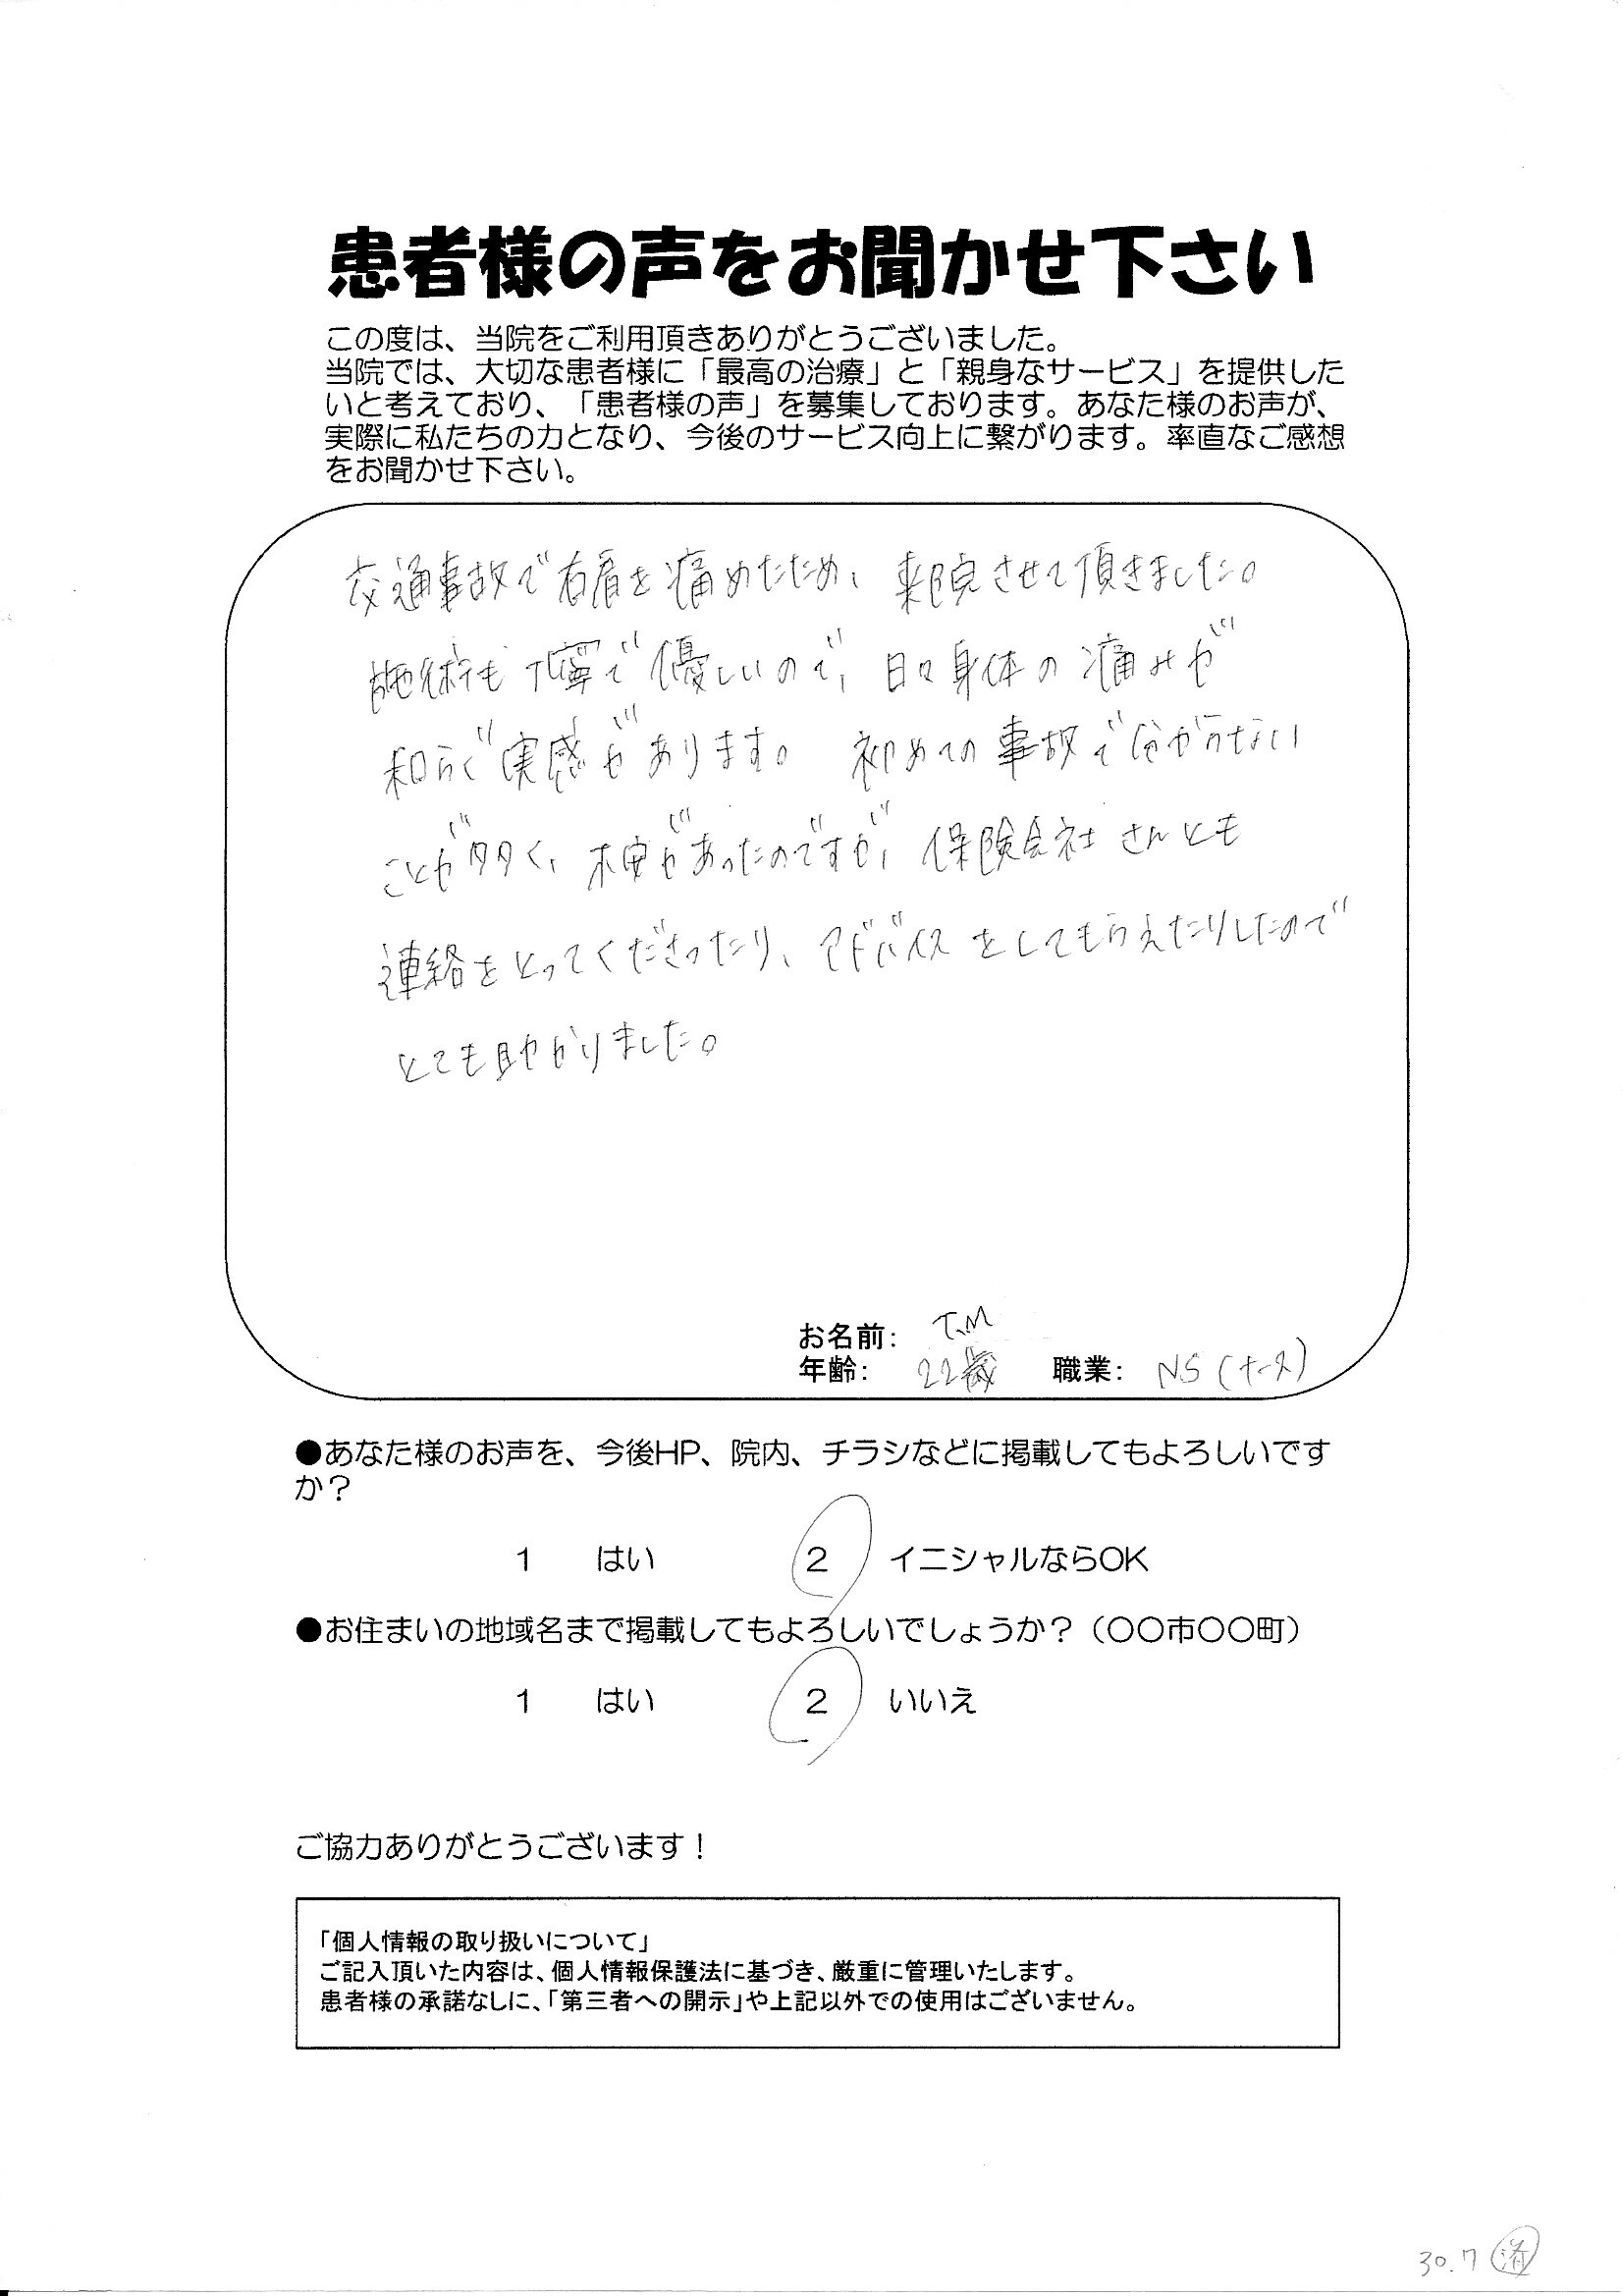 患者様の声をお聞かせ下さい
この度は、当院をご利用頂きありがとうございました。
当院では、大切な患者様に「最高の治療」と「親身なサービス」を提供した
いと考えており、「患者様の声」を募集しております。あなた様のお声が、
実際に私たちの力となり、今後のサービス向上に繋がります。率直なご感想
をお聞かせ下さい。
交通事故で右肩を痛めたため、来院させて頂きました。
施術も丁寧で優しいので、日々身体の痛みが
和らぐ実感があります。 初めての事故で分からない
ことが多く、不安があったのですが、保険会社さんとも
連絡をとってくださったり、アドバイスをしてもらえたりしたので
とても助かりました。
お名前： T.M
年齢： 22歳 職業： NS(ナース)
●あなた様のお声を、今後HP、院内、チラシなどに掲載してもよろしいです
か？
1 はい 2 イニシャルならOK
●お住まいの地域名まで掲載してもよろしいでしょうか？（〇〇市〇〇町）
1 はい 2 いいえ
ご協力ありがとうございます！
「個人情報の取り扱いについて」
ご記入頂いた内容は、個人情報保護法に基づき、厳重に管理いたします。
患者様の承諾なしに、「第三者への開示」や上記以外での使用はございません。
30.7 済